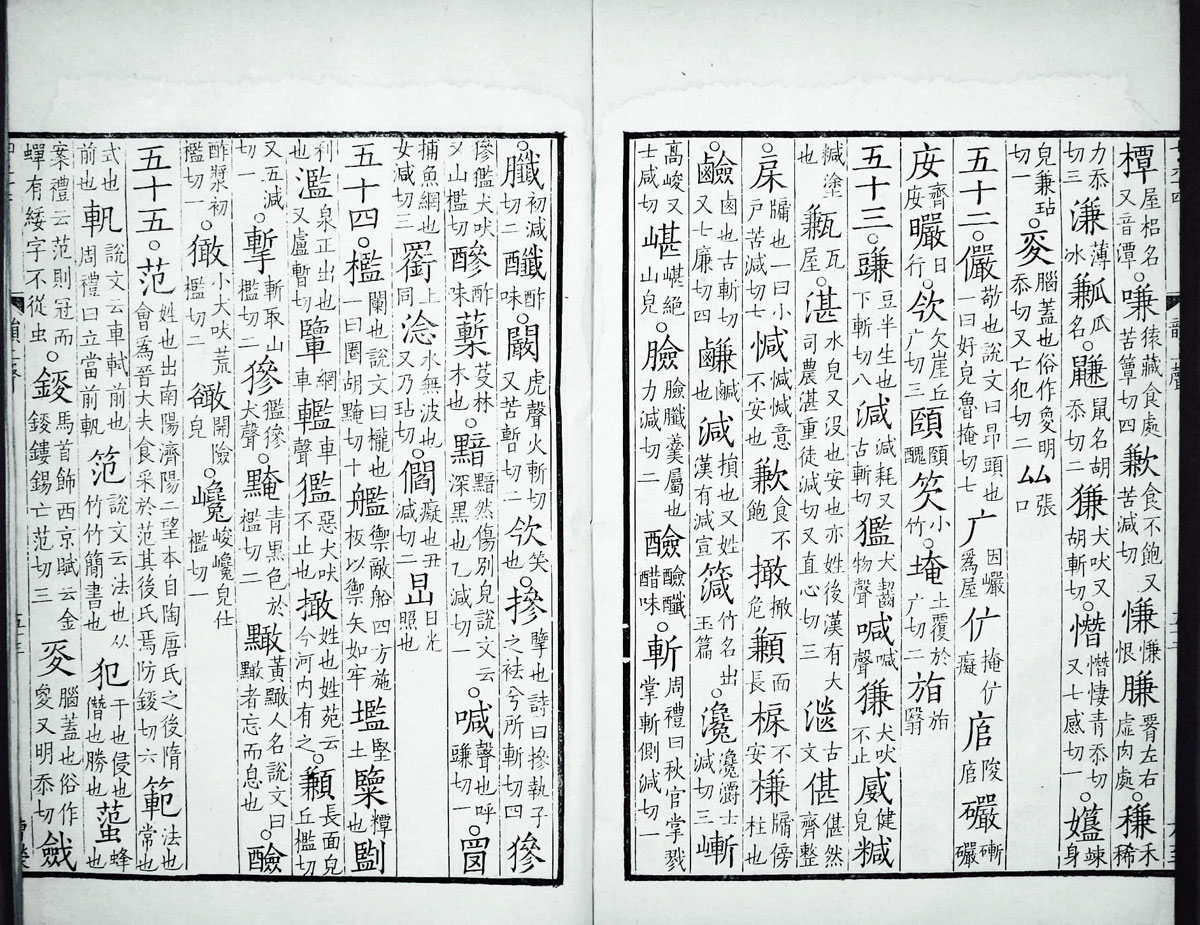 橝屋梠名又音潭○嗛猿藏食處苦簟切四歉食不飽又苦減切慊慊恨膁左右虛肉處○稴禾稀
力忝切三溓薄冰𤬓瓜名○鼸鼠名胡忝切二㺌犬吠又胡斬切○憯憯悽青忝切又七感切一○孂身竦
皃兼玷切一○㚇腦蓋也俗作㚇明忝切又亡犯切二厸張口
五十二○儼敬也說文曰昂頭也一曰好皃魯掩切七广因巖爲屋㐸掩㐸癡㢂陖㢂礹𥕌礹
齊曮日行○欦欠崖丘广切三頤頤醜笶小竹○埯土覆於广切二㫈㫈翳
五十三○豏豆半生也下斬切八減減耗又古斬切㺝犬齧物聲喊喊聲㺌犬吠不止㺂健皃䊏
䊏塗也㼓瓦屋○湛水皃又沒也安也亦姓後漢有大司農湛重徒減切又直心切三㴸古文偡偡然齊整也
○㦿牖也一曰小戶苦減切七㦑㦑㦑意不安也歉食不飽㩎㩎危𩕃面長㮇不安槏牖傍柱也
○鹼鹵也古斬切又士廉切四鹻鹹也減損也又姓漢有減宣𥳒竹名出玉篇○瀺瀺灂士減切三嶃
高峻又士咸切嵁嵁絕山皃○臉臉䐶羹屬也力減切二醶醶䤘醋味○斬周禮曰秋官掌戮掌斬側減切一
○䐶初減切二䤘酢味○闞虎聲火斬切又苦暫切二欦笑也○摻擥也詩曰摻執子之袪兮所斬切四㺑
㺑㺝犬吠又山檻切醦酢味蔪芟林木也○黯黯然傷別皃說文云深黑也乙減切一○喊聲也呼豏切一○囡
捕魚網也女減切三𦌪上同淰水無波也又乃玷切○㒈癡也丑減切二㫒日光照也
五十四○檻闌也說文曰櫳也一曰圈胡黤切十艦禦敵船四方施板以禦矢如牢壏堅土䊲糠也㔋
利也濫泉正出也又盧暫切𨏊網車䡵車聲㺝惡犬吠不止也㩎姓也姓苑云今河内有之○顩長面皃丘檻切
又五減切一○摲斬取山檻切二㺑㺝㺑犬聲○黤青黑色於檻切二黭黃黭人名說文曰黭者忘而息也○醶
酢漿初檻切一○㺖小犬吠荒檻切二㘎開險皃○巉峻巉皃仕檻切一
五十五○范姓也出南陽濟陽二望本自陶唐氏之後隋會爲晉大夫食采於范其後氏焉防錽切六範法也常也
式也前也軓說文云車軾前也周禮曰立當前軓笵說文云法也从竹竹簡書也犯干也侵也僭也勝也䖧蜂也
案禮云范則冠而蟬有緌字不從虫○錽馬首飾西京賦云金錽鏤鍚亡范切三㚇腦蓋也俗作㚇又明忝切㪘